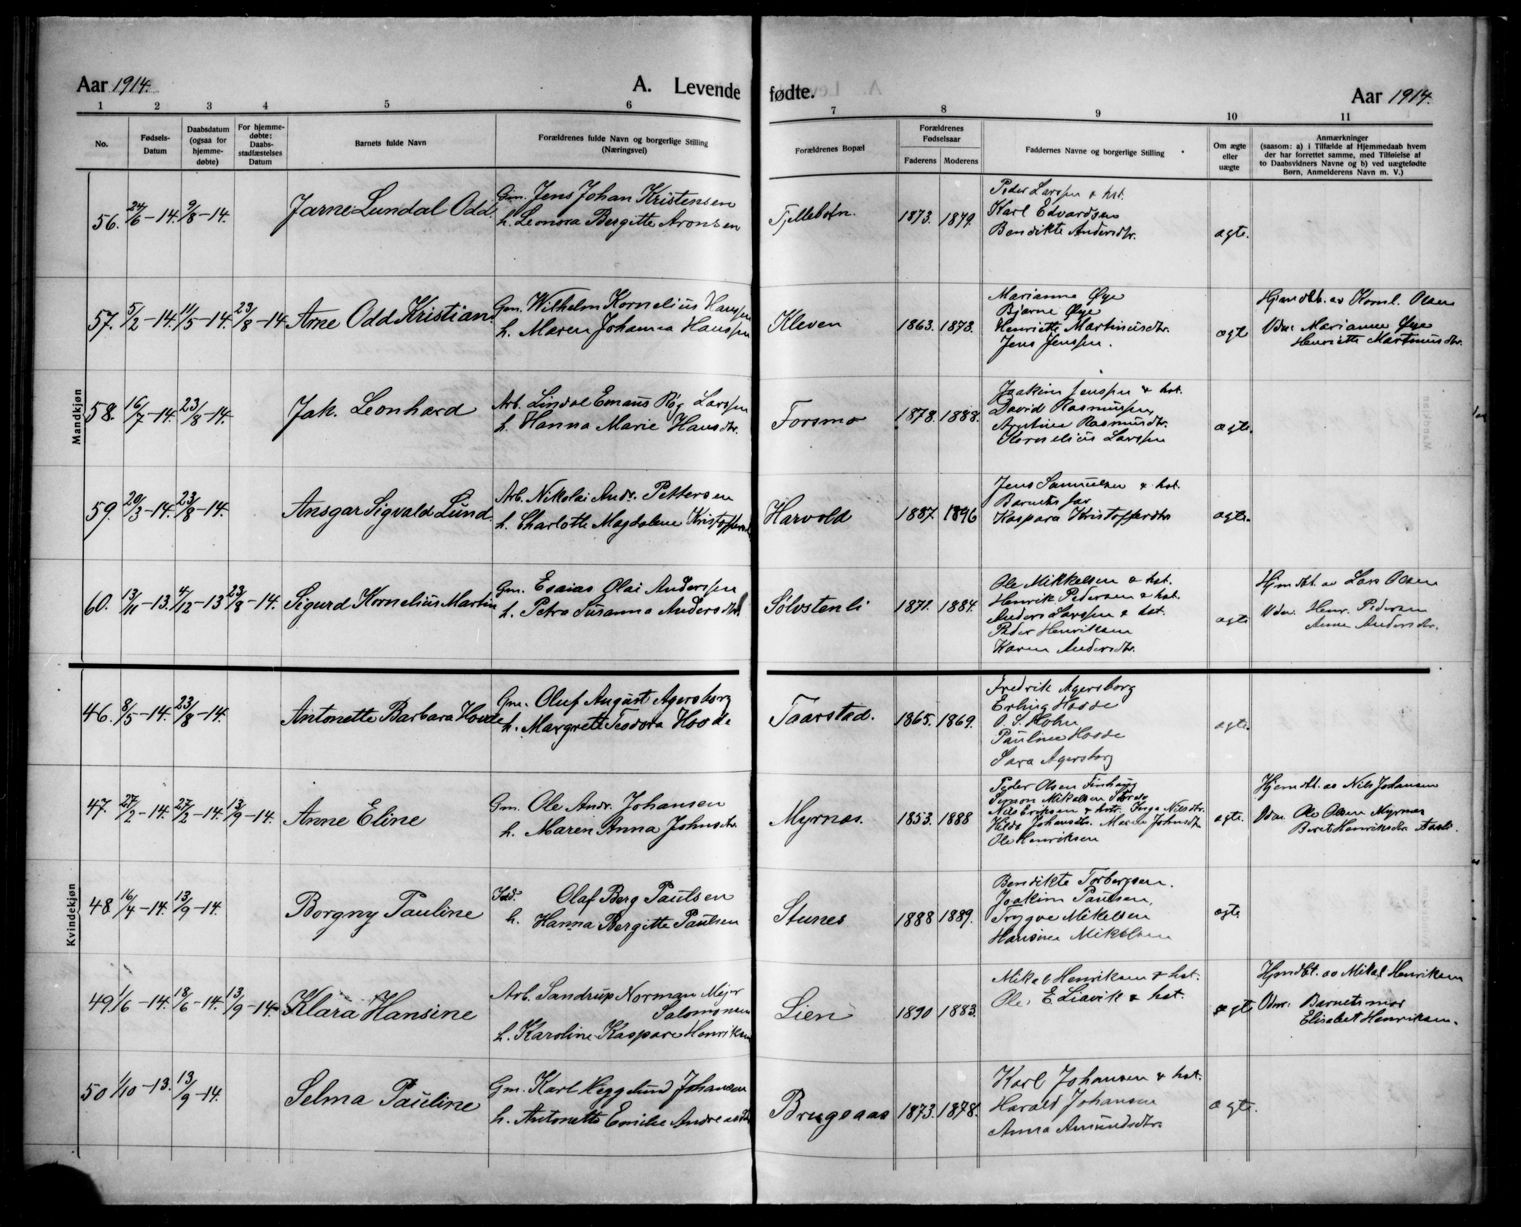 Aar 1914.
A. Levende fødte.
Aar 1914.
1 2 3 4 5 6 7 8 9 10 11
No.
Fødsels-Datum
Daabsdatum (ogsaa for hjemme-døbte)
For hjemme-døbte: Daabs-stadfæstelses Datum
Barnets fulde Navn
Forældrenes fulde Navn og borgerlige Stilling (Næringsvei)
Forældrenes Bopæl
Forældrenes Fødselsaar
Faderens Moderens
Faddernes Navne og borgerlige Stilling
Om ægte eller uægte
Anmærkninger
(saasom: a) i Tilfælde af Hjemmedaab hvem
der har forrettet samme, med Tilføielse af
to Daabsvidners Navne og b) ved uægtefødte
Børn, Anmelderens Navn m. V.)
Mandkjøn
56. 24/6-14. 9/8-14. Jarne Lundal Odd
Gm. Jens Johan Kristensen
h. Leonora Bergitte Aronsen
Tjellebotn. 1873. 1879.
Peder Larssen & hst.
Karl Edvardsen
Bendikte Andersdtr.
ægte.
57. 5/2-14. 11/5-14. 23/8-14. Arne Odd Kristian
Gm. Wilhelm Kornelius Hanssen
h. Maren Johanna Hanssen
Kleven 1863. 1873.
Marianna Øye
Bjarne Øye
Henriette Martinusdtr.
Jens Jenssen.
ægte
Hjemdbt. av Kornl. Olsen
Vdn: Marianne Øye
Henriette Martinusdtr.
58. 16/7-14. 23/8-14. Jak. Leonhard
Arb. Lindal Emaus Larssen
h. Hanna Marie Hansdtr.
Forsmo 1878. 1888.
Joakim Jenssen & hst.
David Rasmussen
Rasmusdtr.
Kornelius Larssen
ægte.
59. 20/3-14. 23/8-14. Ansgar Sigvald Lund
Arb. Nikolai Andr. Pettersen
h. Charlotte Magdalene
Harvold 1887. 1896
Jens Samuelsen & hst.
Barnets far
Kaspara Kristoffersdtr.
ægte.
60. 13/11-13. 4/12-13 23/8-14. Sigurd Kornelius Martin
Gm. Esaias Olai Anderssen
h. Petra Susanna Andersdtr.
Sølvstenli 1871. 1884.
Ole Mikkelsen & hst.
Henrik Pedersen & hst.
Anders Larssen & hst.
Peder Henriksen
Karen Andersdtr.
ægte
Hjmdbt. av Lars Olsen
Vdn: Henr. Pedersen
Anne Andersdtr.
Kvindekjøn
46. 8/5-14. 23/8-14. Antonette Barbara Hovde
Gm. Oluf August Agersborg
h. Margrete Teodora Hovde
Taarstad. 1865. 1869.
Fredrik Agersborg
Erling Hovde
O. S. Hohn
Pauline Hovde
Sara Agersborg
ægte.
47. 27/2-14. 27/2-14. 13/9-14. Anne Eline
Gm. Ole Andr. Johansen
h. Maren Anna Johnsdtr
Myrnes 1853. 1888
Peder Olsen
Mikalsen
Inga Nilsdtr.
Hilda Johansdtr. Johansdtr
Ole Henriksen
ægte.
Hjemdbt. av Nils Johansen
Vdn: Ole Olsen Myrnes
Berit Henriksdtr.
48. 16/4-14. 13/9-14. Borgny Pauline
Olaf Berg Paulsen
h. Hanna Bergitte Paulsen
Stunes 1888 1889.
Bendikte Torbergsen.
Joakim Paulsen,
Trygve Mikelsen
Hansine Mikelsen
ægte
49. 1/6-14. 18/6-14. 13/9-14. Klara Hansine
Arb. Sandrup Norman Mejer
Salomonsen
h. Karoline Kaspara Henriksen
Lien 1890 1883.
Mikal Henriksen & hst.
Ole Eliavik & hst.
ægte
Hjmdbt. av Mikal Henriksen
Vdn: Barnets mor
Elisabet Henriksen.
50 1/10-13. 13/9-14. Selma Pauline
Gm. Karl Heggelund Johansen
h. Antonette Emilie
Brugeaas 1873. 1878.
Karl Johansen & hst.
Harald Johansen
Anna Amundsdtr.
ægte.